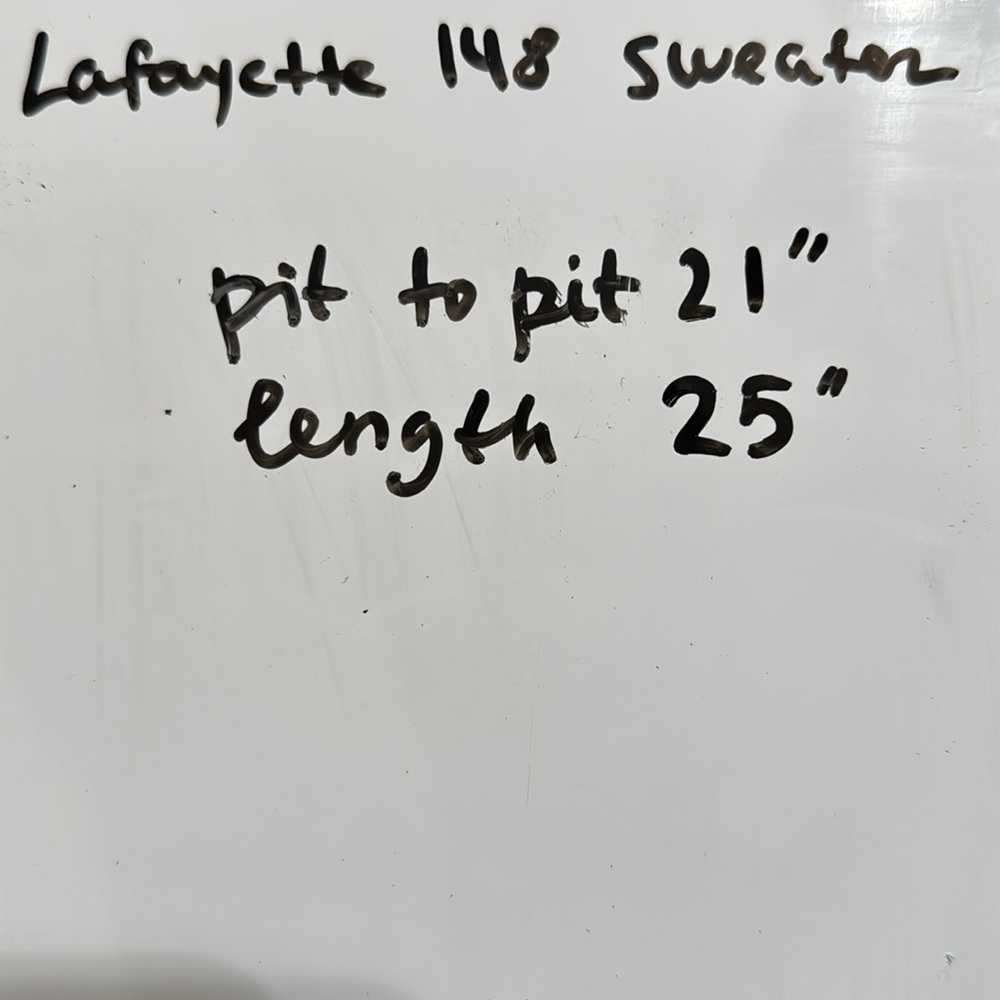 Lafayette 148 sweater
pit to pit 21"
length 25"